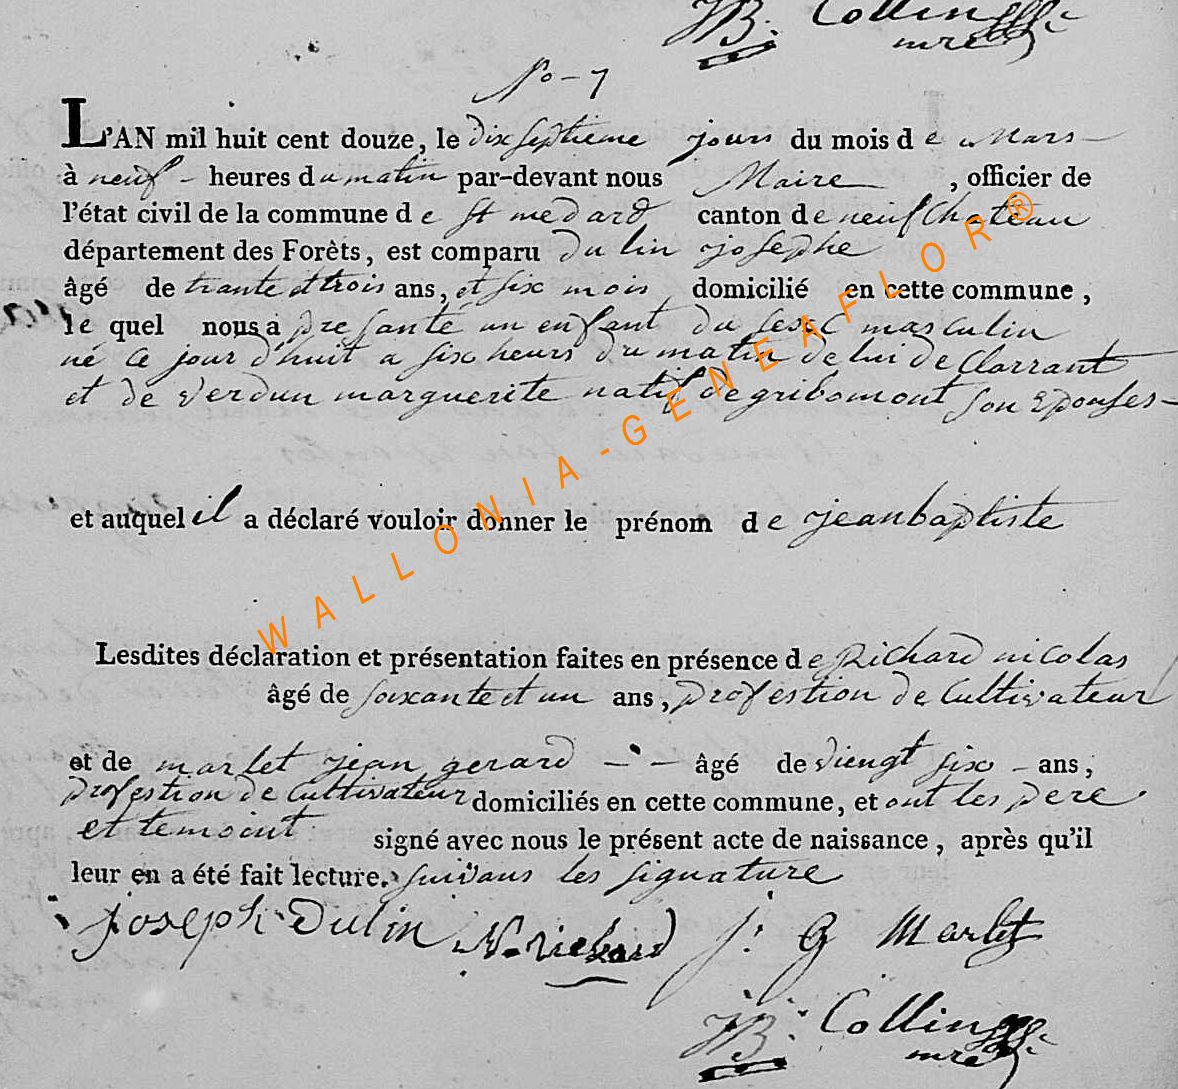 JB. Collin
mre
No - 7
L'AN mil huit cent douze, le dixseptieme jours du mois de Mars
à neuf - heures du matin par-devant nous Maire , officier de
l'état civil de la commune de St medard canton de neufChateau
département des Forêts, est comparu dulin josephe
âgé de trante et trois ans, et six mois domicilié en cette commune,
le quel nous a presanté un enfant du sexe masculin
né ce jour d'huit a six heurs du matin de lui declarrant
et de verdun marguerite natif de gribomont son Epouses -
et auquel il a déclaré vouloir donner le prénom de jeanbaptiste
Lesdites déclaration et présentation faites en présence de Richard nicolas
âgé de soixante et un ans, profestion de Cultivateur
et de marlet jean gerard - - âgé de viengt six - ans,
profestion de Cultivateur domiciliés en cette commune, et ont les pere
et temoint signé avec nous le présent acte de naissance, après qu'il
leur en a été fait lecture. suivans les signature
joseph Dulin N. Richard j. G Marlet
JB. Collin
mre
WALLONIA-GENEAFLOR®